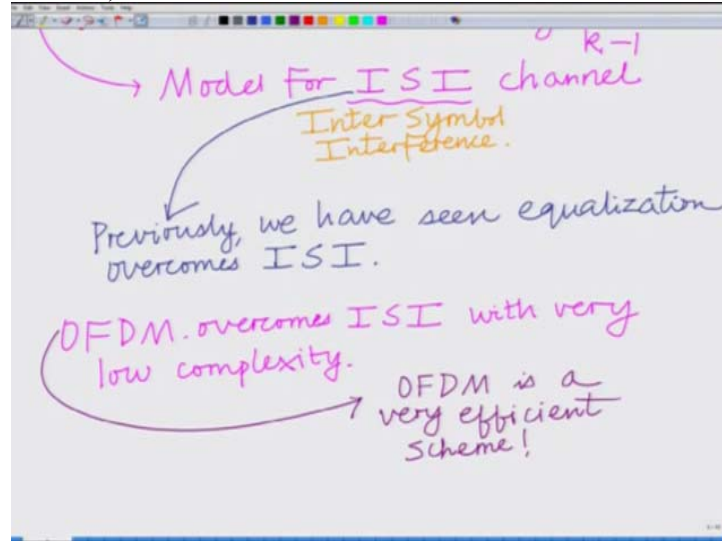 k-1
Model For ISI channel
Inter Symbol
Interference.
Previously, we have seen equalization
overcomes ISI.
OFDM. overcomes ISI with very
low complexity.
OFDM is a
very efficient
scheme!